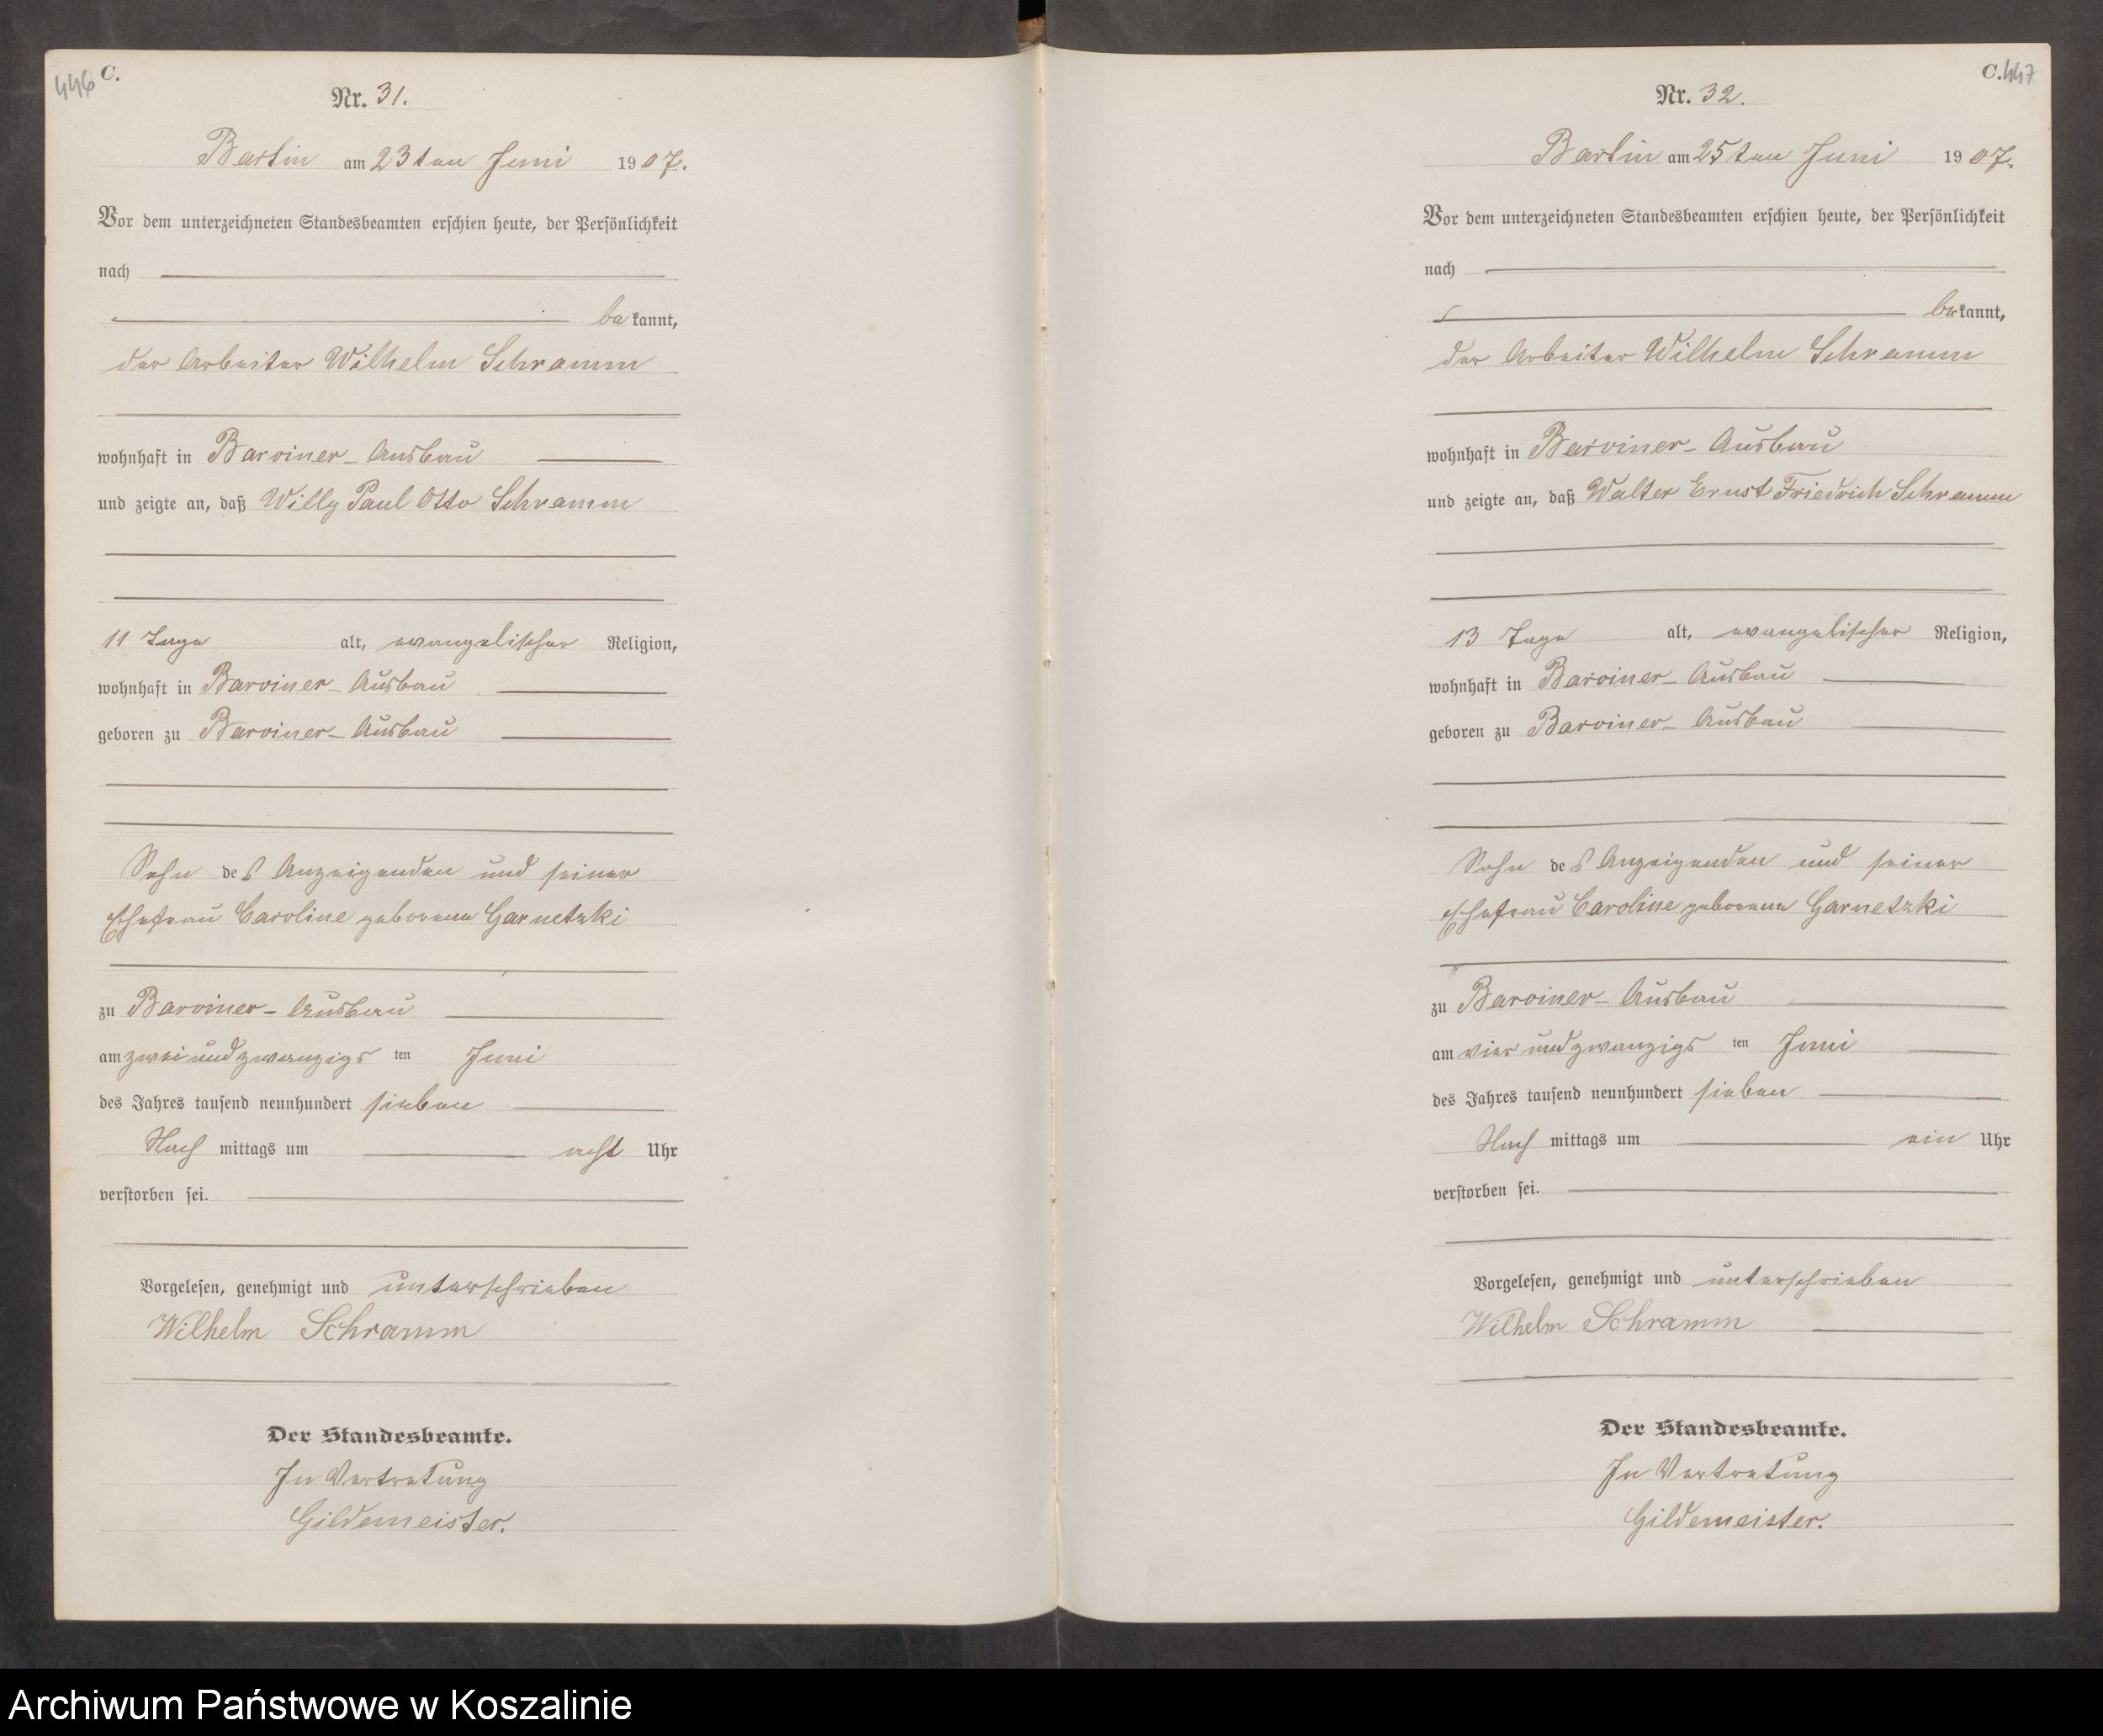 446 C.
Nr. 31.
Bartin am 23ten Juni 1907.
Vor dem unterzeichneten Standesbeamten erschien heute, der Persönlichkeit
nach
bekannt,
der Arbeiter Wilhelm Schramm
wohnhaft in Barviner-Ausbau
und zeigte an, daß Willy Paul Otto Schramm
11 Tage alt, evangelischer Religion,
wohnhaft in Barviner-Ausbau
geboren zu Barviner-Ausbau
Sohn des Anzeigenden und seiner
Ehefrau Caroline geborene Garnetzki
zu Barviner-Ausbau
am zweiundzwanzigsten Juni
des Jahres tausend neunhundert sieben
Nachmittags um acht Uhr
verstorben sei.
Vorgelesen, genehmigt und unterschrieben
Wilhelm Schramm
Der Standesbeamte.
In Vertretung
Gildemeister.
C. 447
Nr. 32.
Bartin am 25ten Juni 1907.
Vor dem unterzeichneten Standesbeamten erschien heute, der Persönlichkeit
nach
bekannt,
der Arbeiter Wilhelm Schramm
wohnhaft in Barviner-Ausbau
und zeigte an, daß Walter Ernst Friedrich Schramm
13 Tage alt, evangelischer Religion,
wohnhaft in Barviner-Ausbau
geboren zu Barviner-Ausbau
Sohn des Anzeigenden und seiner
Ehefrau Caroline geborene Garnetzki
zu Barviner-Ausbau
am vierundzwanzigsten Juni
des Jahres tausend neunhundert sieben
Nachmittags um ein Uhr
verstorben sei.
Vorgelesen, genehmigt und unterschrieben
Wilhelm Schramm
Der Standesbeamte.
In Vertretung
Gildemeister.
Archiwum Państwowe w Koszalinie